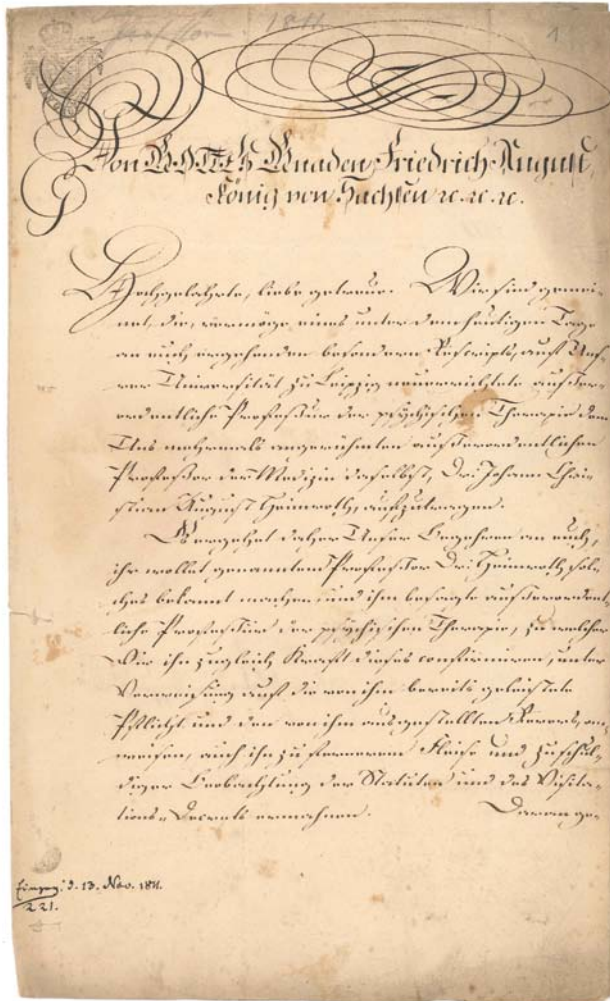 1811.
1
Von GOTTES Gnaden, Friedrich August,
König von Sachsen ꝛc. ꝛc. ꝛc.
Hochgelahrte, liebe getreue. Wir sind gemei-
net, die, vermöge eines unter dem heutigen Tage
an euch ergehenden besondern Rescripts, auf Unse-
rer Universität zu Leipzig neuerrichtete außer-
ordentliche Professur der psychischen Therapie dem
Uns mehrmals angerühmten außerordentlichen
Professor der Medizin daselbst, Dr. Johann Chri-
stian August Heinroth, aufzutragen.
Es ergehet daher Unser Begehren an euch,
ihr wollet genannten Professor Dr. Heinroth sol-
ches bekannt machen, und ihm besagte außerordent-
liche Professur der psychischen Therapie, zu welcher
Wir ihn zugleich Kraft dieses confirmiren, unter
Verweisung auf die von ihm bereits geleistete
Pflicht und den von ihm ausgestellten Revers, an-
weisen, auch ihn zu fernerem Fleiße und zu schul-
diger Beobachtung der Statuten und des Visita-
tions-Decrets ermahnen. Daran ge-
d. 13. Nov. 1811.
221.